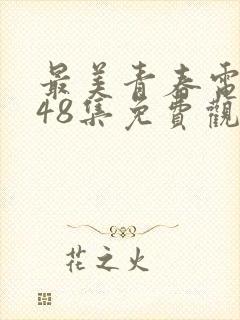 最美青春電
48集免費觀
花之火